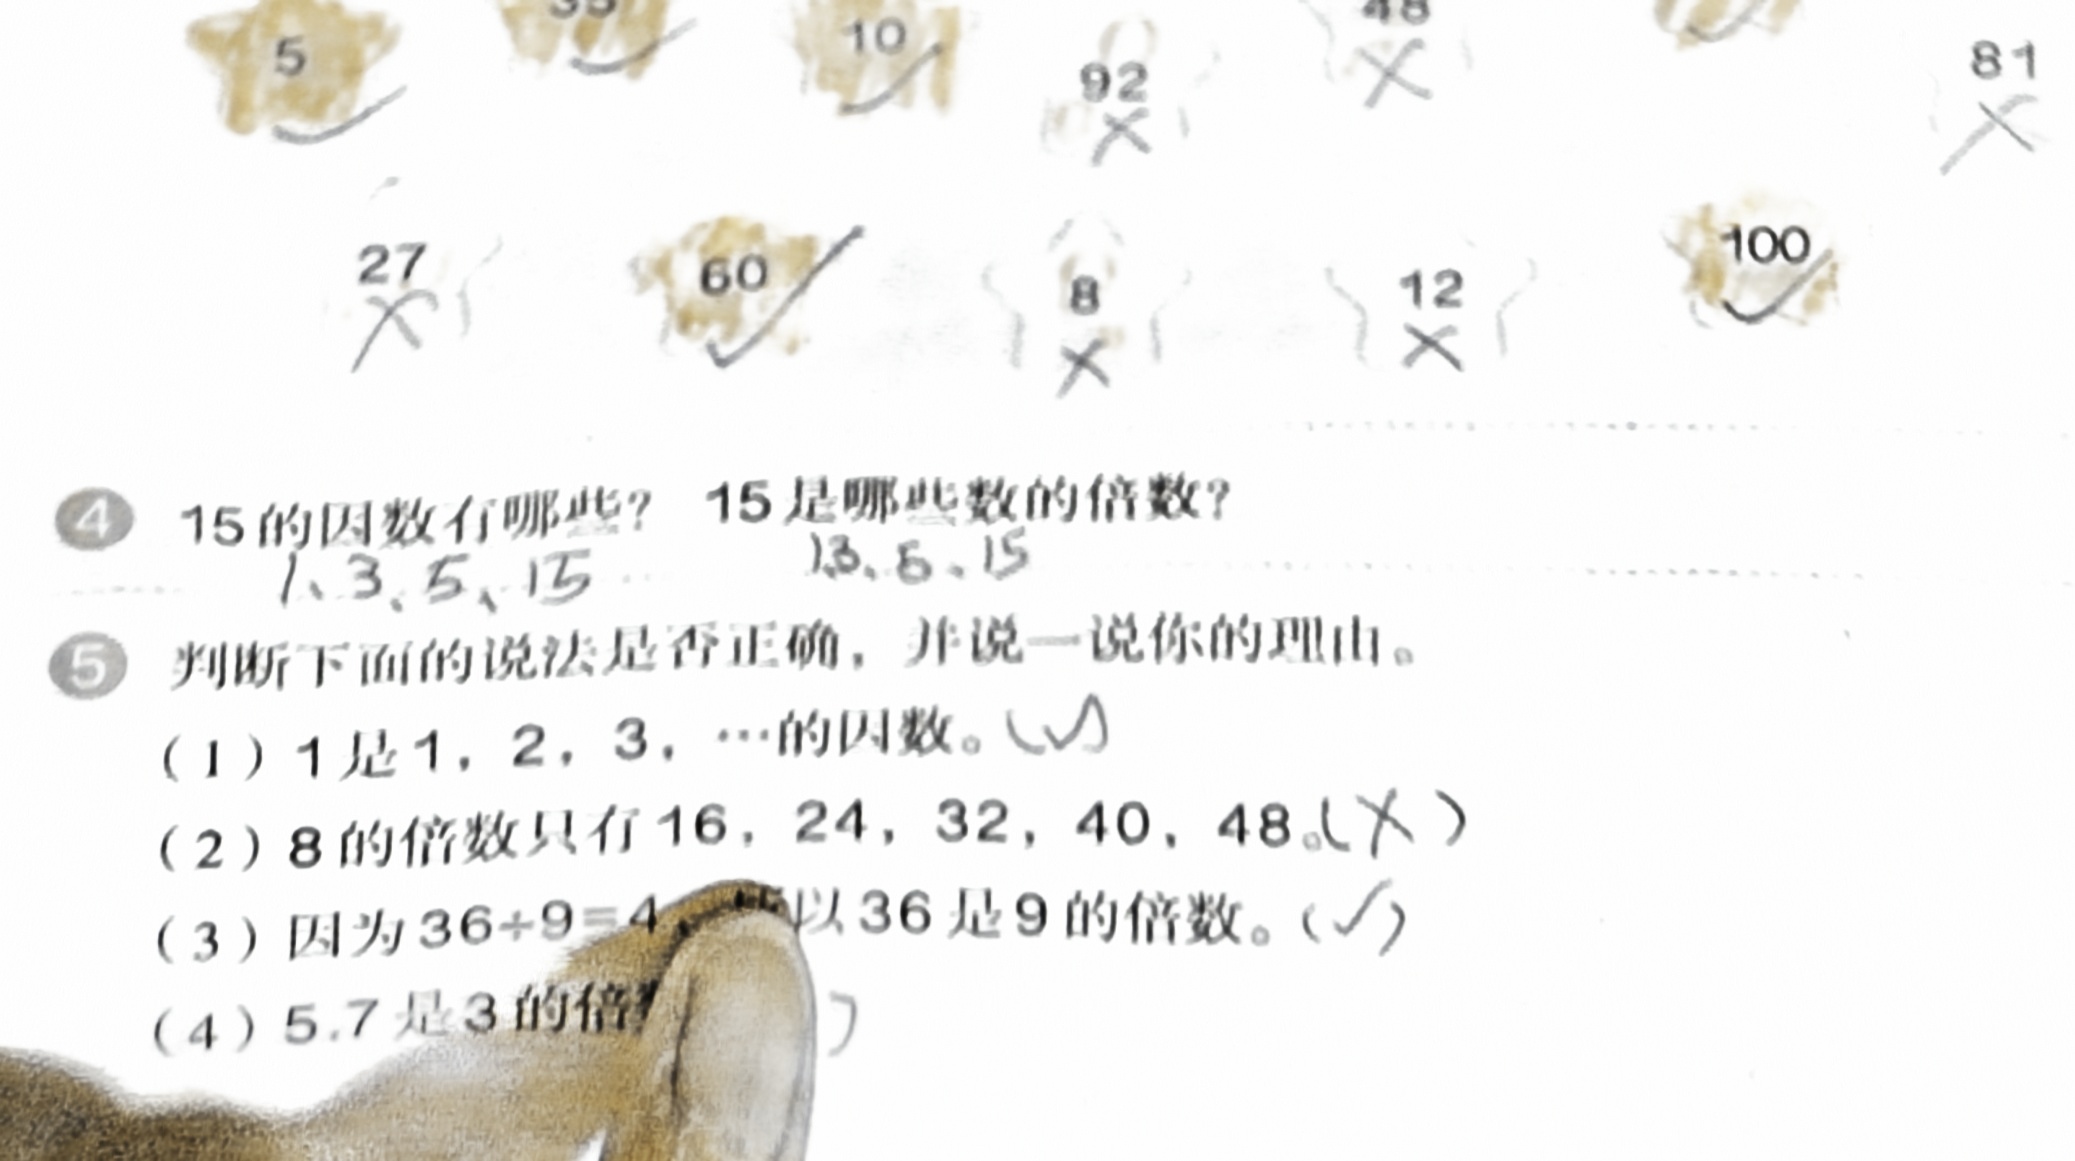 5 35 10 92 48 81
27 60 8 12 100
4 15的因数有哪些? 15是哪些数的倍数?
1、3、5、15 1、3、5、15
5 判断下面的说法是否正确，并说一说你的理由。
（1）1是1，2，3，…的因数。(√)
（2）8的倍数只有16，24，32，40，48。(×)
（3）因为36÷9=4，所以36是9的倍数。(√)
（4）5.7是3的倍 )